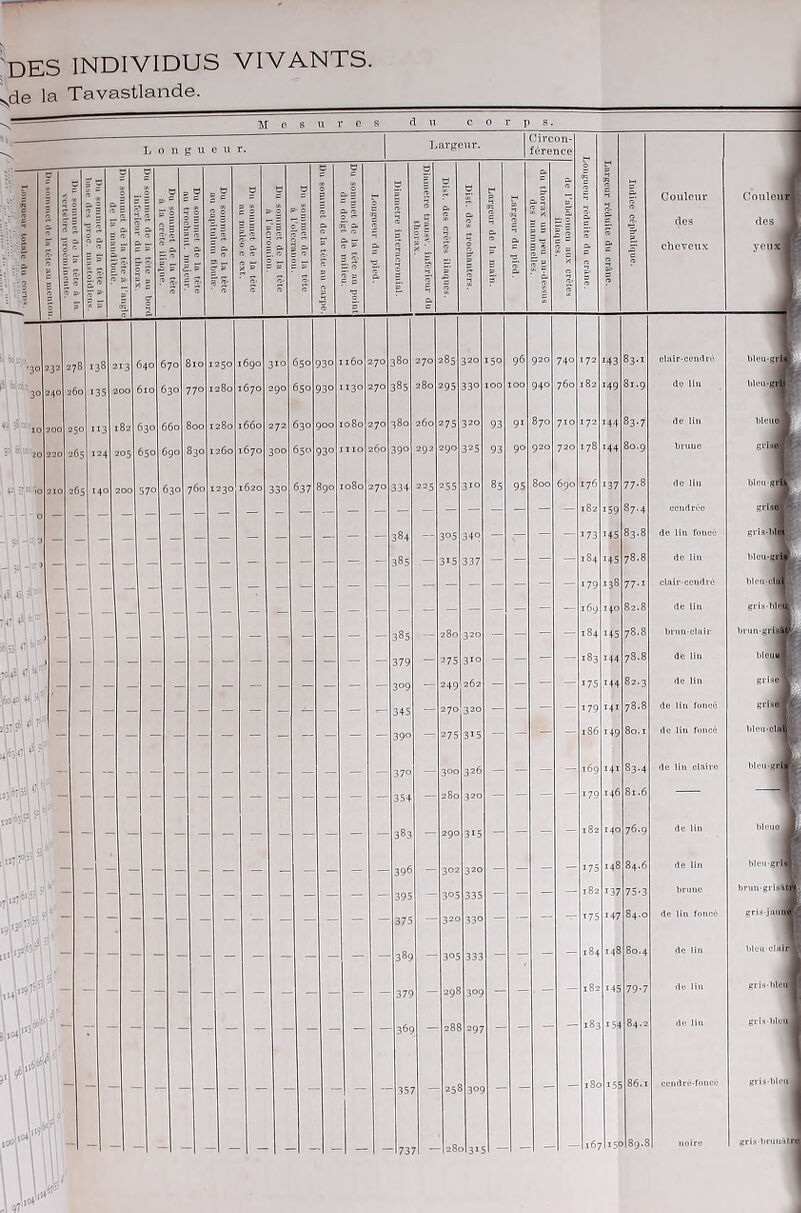 DES INDIVIDUS VIVANTS.
de la Tavastlande.
Mesures du corps.
Longueur. Largeur. Circonférence
Longueur totale du corps.
Du sommet de la tête au menton.
Du sommet de la tête à la vertèbre proéminente.
Du sommet de la tête à la base des proc. mastoïdiens.
Du sommet de la tête à l'angle de la mandibule.
Du sommet de la tête au bord inférieur du thorax.
Du sommet de la tête à la crête iliaque.
Du sommet de la tête au trochant. majeur.
Du sommet de la tête au capitulum fibulæ.
Du sommet de la tête au maléo e ext.
Du sommet de la tête à l'acromion.
Du sommet de la tête à l'olecranon.
Du sommet de la tête au carpe.
Du sommet de la tête au point du doigt de milieu.
Longueur du pied.
Diamètre interacromial.
Diamètre transv. inférieur du thorax.
Dist. des crêtes iliaques.
Dist. des trochanters.
Largeur de la main.
Largeur du pied.
du thorax un peu au-dessus des mammelles.
de l'abdomen aux crêtes iliaques.
Longueur réduite du crâne.
Largeur réduite du crâne.
Indice céphalique.
Couleur des cheveux
Couleur des yeux
30 232 278 138 213 640 670 810 1250 1690 310 650 930 1160 270 380 270 285 320 150 96 920 740 172 143 83.1 clair-cendré bleu-gri
30 240 260 135 200 610 630 770 1280 1670 290 650 930 1130 270 385 280 295 330 100 100 940 760 182 149 81.9 de lin bleu-gri
10 200 250 113 182 630 660 800 1280 1660 272 630 900 1080 270 380 260 275 320 93 91 870 710 172 144 83.7 de lin bleue
20 220 265 124 205 650 690 830 1260 1670 300 650 930 1110 260 390 292 290 325 93 90 920 720 178 144 80.9 brune grise
10 210 265 140 200 570 630 760 1230 1620 330 637 890 1080 270 334 225 255 310 85 95 800 690 176 137 77.8 de lin bleu-gri
182 159 87.4 cendrée grise
384 — 305 340 — — — — 173 145 83.8 de lin foncé gris-bleu
385 — 315 337 — — — — 184 145 78.8 de lin bleu-gri
179 138 77.1 clair-cendré bleu-clai
169 140 82.8 de lin gris-bleu
385 — 280 320 — — — — 184 145 78.8 brun-clair brun-grisât
379 — 275 310 — — — — 183 144 78.8 de lin bleue
309 — 249 262 — — — — 175 144 82.3 de lin grise
345 — 270 320 — — — — 179 141 78.8 de lin foncé grise
390 — 275 315 — — — — 186 149 80.1 de lin foncé bleu-clai
370 — 300 326 — — — — 169 141 83.4 de lin claire bleu-gri
354 — 280 320 — — — — 179 146 81.6 —
383 — 290 315 — — — — 182 140 76.9 de lin bleue
396 — 302 320 — — — — 175 148 84.6 de lin bleu-gris
395 — 305 335 — — — — 182 137 75.3 brune brun-grisâtr
375 — 320 330 — — — — 175 147 84.0 de lin foncé gris-jaune
389 — 305 333 — — — — 184 148 80.4 de lin bleu clair
379 — 298 309 — — — — 182 145 79.7 de lin gris-bleu
369 — 288 297 — — — — 183 154 84.2 de lin gris-bleu
357 — 258 309 — — — — 180 155 86.1 cendré-foncé gris-bleu
737 — 280 315 — — — — 167 150 89.8 noire gris-brunâtre